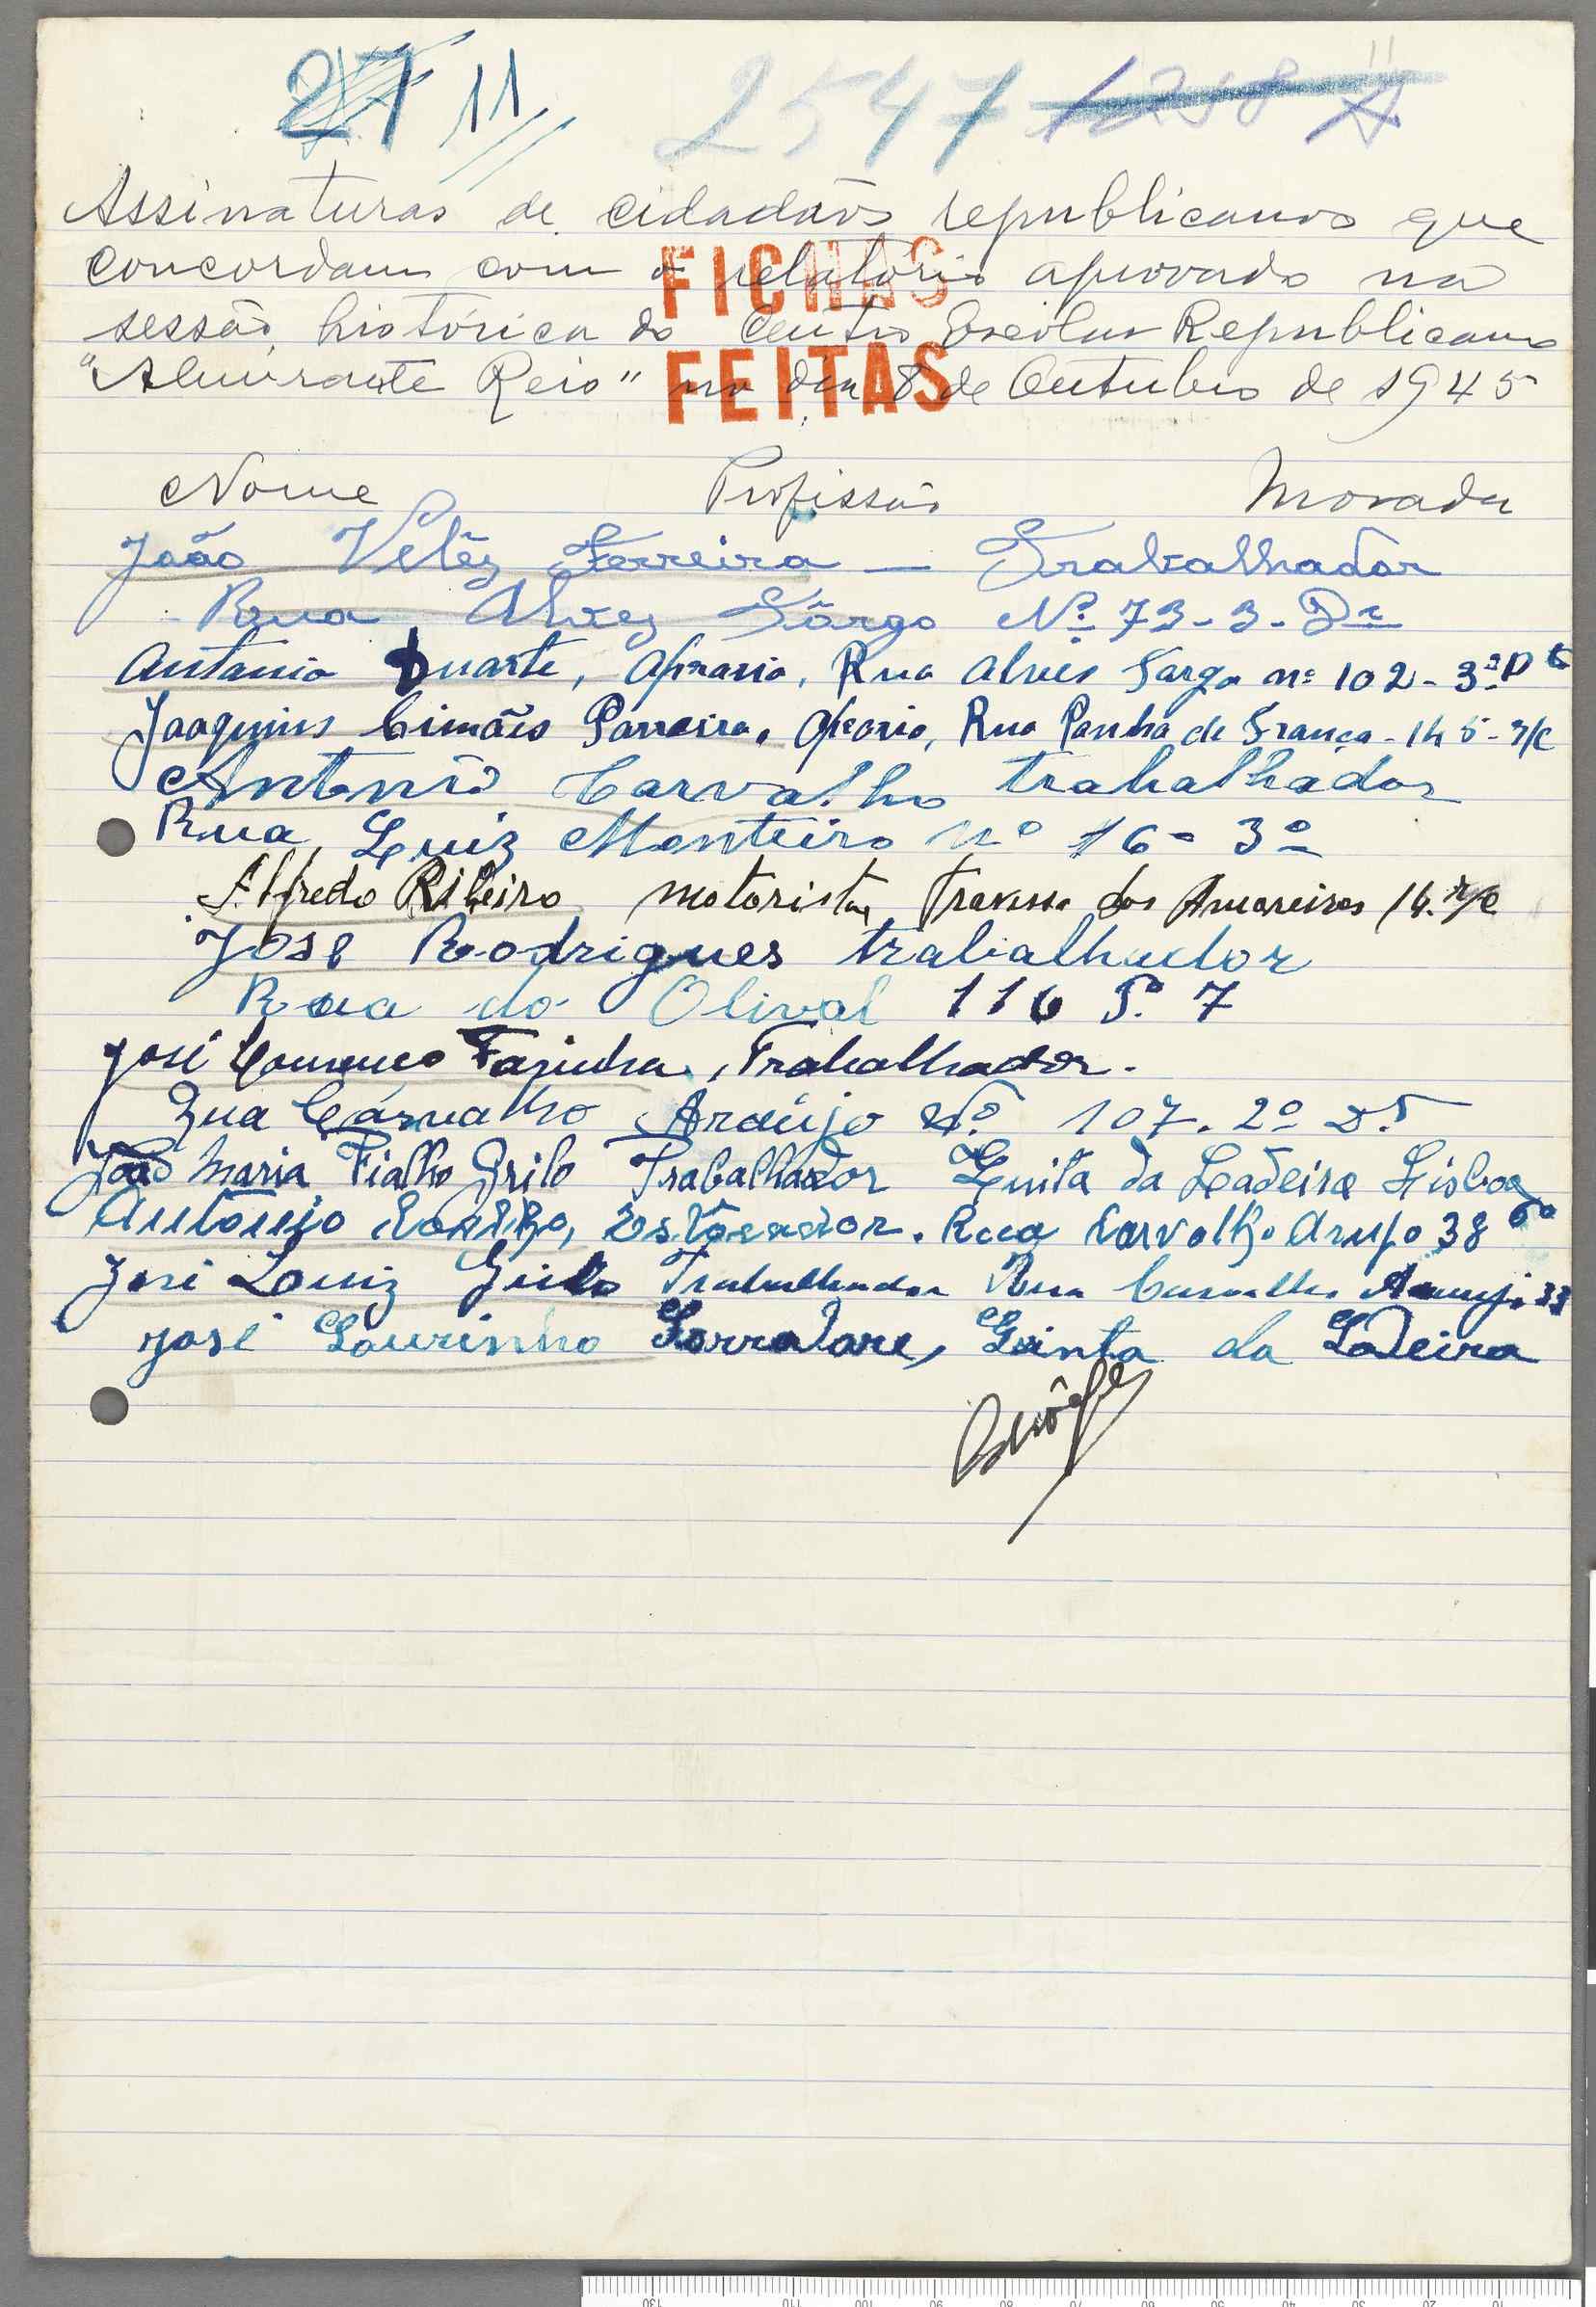 27 11
2547 1238
Assinaturas de cidadãos republicanos que
concordam com o relatório aprovado na
FICHAS
sessão, histórica do Centro Escolar Republicano
FEITAS
"Almirante Reis" no dia 8 de Outubro de 1945
Nome Profissão Morada
João Veléz Ferreira — Trabalhador
Rua Alvez Tôrgo Nº 73-3-Dº
Antonio Duarte, Rua Alves Targo nº 102-3º Dt
Joaquim Simões Parreira, Rua Panha de França-145-r/c
Antonio Carvalho trabalhador
Rua Luiz Monteiro nº 16-3º
Alfredo Ribeiro motorista Travessa das Amoreiras r/c
José Rodrigues trabalhador
Rua do Olival 116 7
José Lourenço Farinha, Trabalhador.
Rua Cárvalho Araújo Nº 107. 2º
João Maria Fialho Grilo Trabalhador Quita da Ladeira Lisboa
Antonio Rua Carvalho 38
José Louiz Grilo Trabalhador Rua Carvalho Araujo 33
José Lourinho Quinta da Ladeira